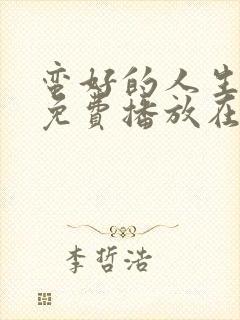 蛮好的人生
免費播放在
李哲浩